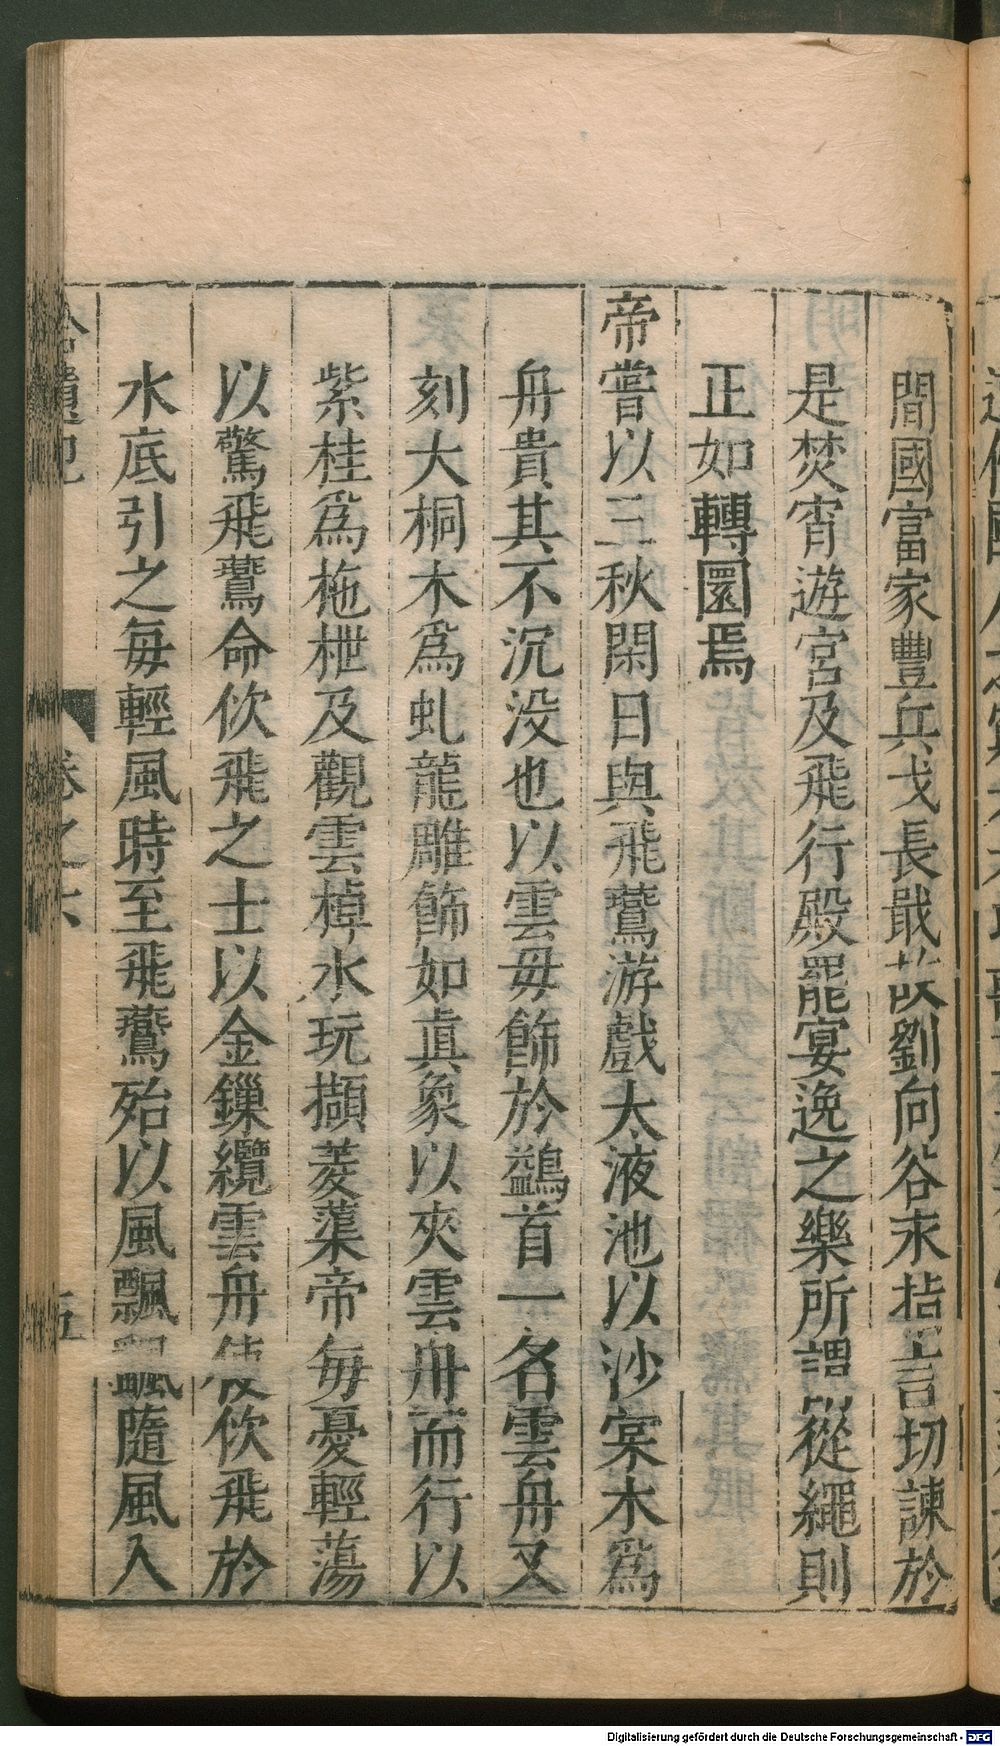 間國富家豐兵戈長戢故劉向谷永指言切諫於
是焚宵遊宮及飛行殿罷宴逸之樂所謂從繩則
正如轉圜焉
帝嘗以三秋閑日與飛鷰游戲太液池以沙棠木爲
舟貴其不沉没也以雲母飾於鷁首一名雲舟又
刻大桐木爲虬龍雕飾如眞象以夾雲舟而行以
紫桂爲柂枻及觀雲棹水玩擷菱蕖帝每憂輕蕩
以驚飛鷰命佽飛之士以金鏁纜雲舟使佽飛於
水底引之每輕風時至飛鷰殆以風飄飄隨風入
拾遺記
卷之六
五
Digitalisierung gefördert durch die Deutsche Forschungsgemeinschaft - DFG